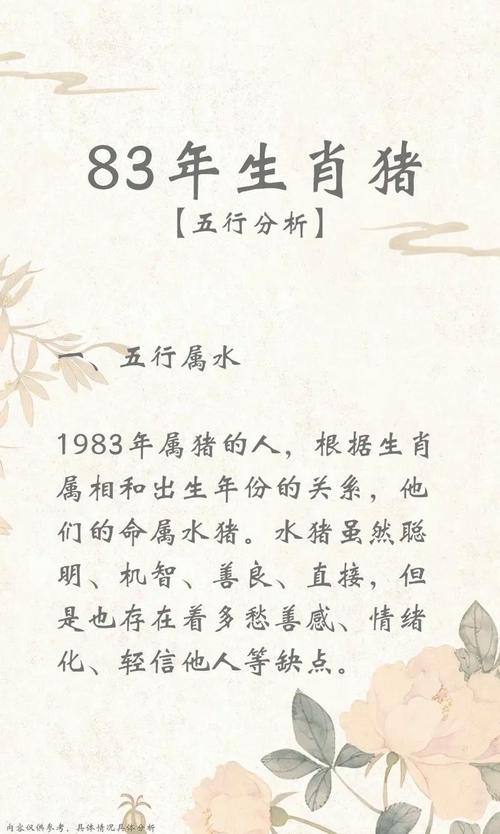 83年生肖猪
【五行分析】
一、五行属水
1983年属猪的人，根据生肖
属相和出生年份的关系，他
们的命属水猪。水猪虽然聪
明、机智、善良、直接，但
是也存在着多愁善感、情绪
化、轻信他人等缺点。
内容仅供参考，具体情况具体分析